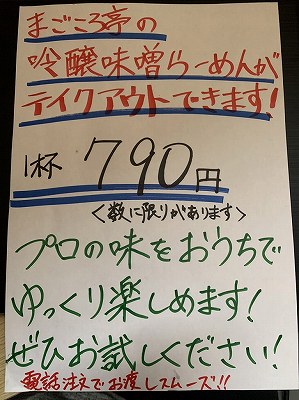 まごころ亭の
吟醸味噌らーめんが
テイクアウトできます!
1杯 790円
<数に限りがあります>
プロの味をおうちで
ゆっくり楽しめます!
ぜひお試しください!
電話注文でお渡しスムーズ!!